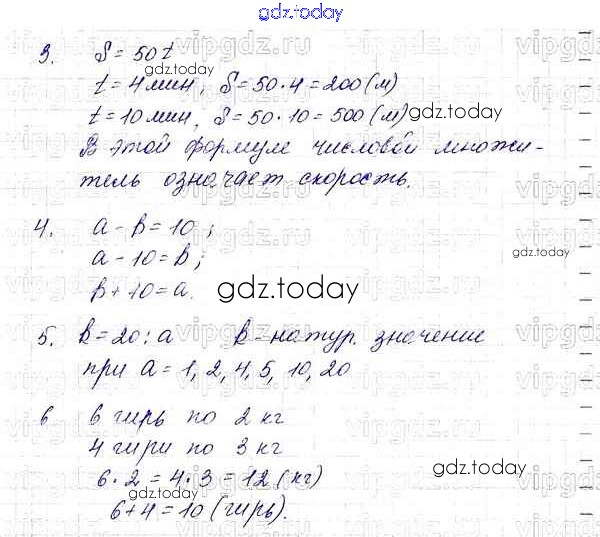 gdz.today
vipgdz.ru vipgdz.ru vipgdz.ru
3. S = 50t
gdz.today
t = 4 мин, S = 50·4 = 200 (м)
t = 10 мин, S = 50·10 = 500 (м)
gdz.today
В этой формуле числовой множи-
тель означает скорость.
4. a - b = 10;
a - 10 = b;
gdz.today
b + 10 = a.
gdz.today
5. b = 20 : a b - натур. значение
при a = 1, 2, 4, 5, 10, 20
6 6 гирь по 2 кг
4 гири по 3 кг
6·2 = 4·3 = 12 (кг)
gdz.today
6 + 4 = 10 (гирь).
gdz.today